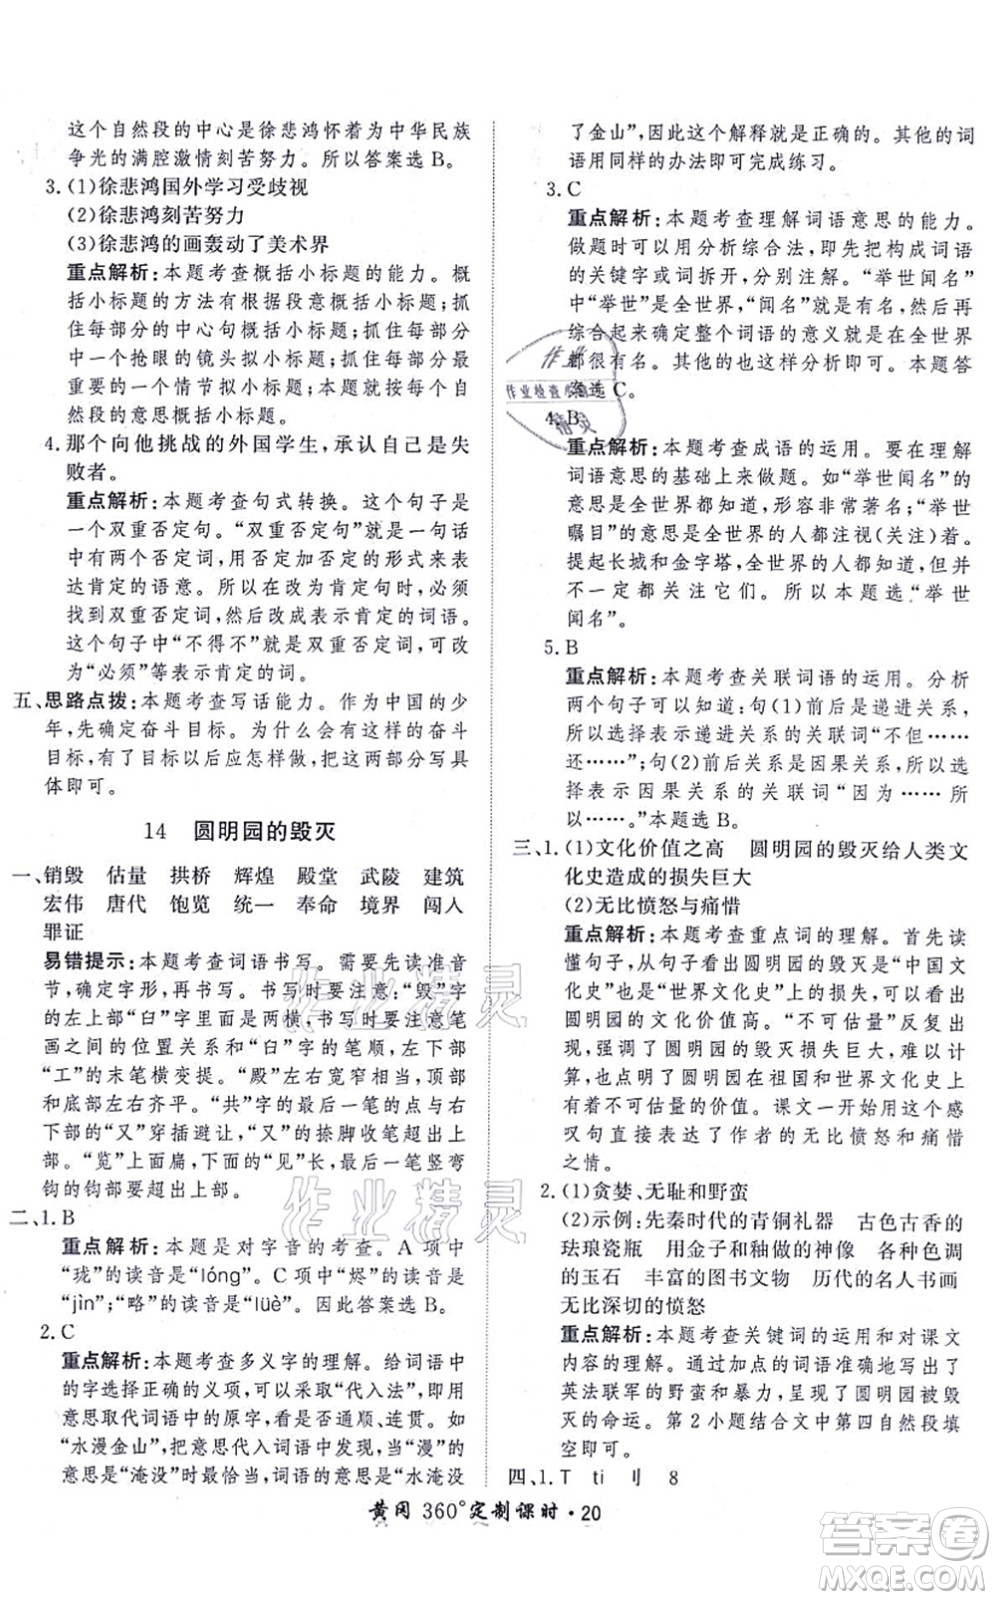 这个自然段的中心是徐悲鸿怀着为中华民族
争光的满腔激情刻苦努力。所以答案选 B。
3. (1)徐悲鸿国外学习受歧视
(2)徐悲鸿刻苦努力
(3)徐悲鸿的画轰动了美术界
重点解析:本题考查概括小标题的能力。概
括小标题的方法有根据段意概括小标题;抓
住每部分的中心句概括小标题;抓住每部分
中一个抢眼的镜头拟小标题;抓住每部分最
重要的一个情节拟小标题;本题可以根据自
然段的意思概括小标题。
4. 那个向他挑战的外国学生,承认自己是失
败者。
重点解析:本题考查句式转换。这个句子是
一个双重否定句。“双重否定句”就是一句话
中有两个否定词,用否定加否定的形式来表
达肯定的语意。所以在改为肯定句时,必须
找出双重否定词,然后改成表示肯定的词语。
这个句子中“不得不”就是双重否定词,可改
为“必须”等表示肯定的词。
五、思路点拨:本题考查写话能力。作为中国的少
年,先确定奋斗目标。为什么会有这样的奋斗
目标,有了目标以后应怎样做,这两部分写具
体即可。
14 圆明园的毁灭
一、销毁 估量 拱桥 辉煌 殿堂 武陵 建筑
宏伟 唐代 饱览 统一 奉命 境界 闯入
罪证
易错提示:本题考查词语书写。需要先读准音
节,确定字形,再书写。书写时要注意:“毁”字
的左上部“臼”字里面是两横,书写时要注意笔
画之间的位置关系和“臼”字的笔顺,左下部
“工”的末笔横变提。“殿”左右宽窄相仿,左上
部和左底部齐平。“共”字的最后一笔的点与右
下部的“又”穿插避让,“又”的捺脚收笔超出上
部。“览”上面扁,下面的“见”长,最后一笔竖弯
钩的钩部要超出上部。
二、1. B
重点解析:本题是对字音的考查。A 项中
“珑”的读音是“lóng”。C 项中“烬”的读音是
“jìn”;“略”的读音是“lüè”。因此答案选 B。
2. C
重点解析:本题考查多义字的理解。给词语中
的字选择正确的义项,可以采取“代入法”,即用
意思取代词语中的原字,看是否通顺、连贯。如
“水漫金山”,把意思代入词语中发现,当“漫”的
意思是“淹没”时最恰当,词语的意思是“水淹没
了金山”,因此这个解释就是正确的。其他的词
语用同样的办法即可完成练习。
3. C
重点解析:本题考查理解词语意思的能力。
做题时可以采用分析综合法,即先把构成词语
的关键字或词拆开,分别注解。“举世闻名”
中“举世”是全世界,“闻名”是非常有名,然后再
综合起来确定整个词语的意义就是在全世界
都很有名。其他的也这样分析即可。本题答
案选 C。
4. B
重点解析:本题考查成语的运用。要在理解
词语意思的基础上来做题。如“举世闻名”的
意思是全世界都知道,形容非常著名;“举世
瞩目”的意思是全世界的人都注视(关注)着。
提起长城和金字塔,全世界的人都知道,但并
不一定都关注它们。所以此处应选“举世
闻名”。
5. B
重点解析:本题考查关联词语的运用。分析
两个句子可以知道:句(1)前后是递进关系,
所以选择表示递进关系的关联词“不但……
还……”;句(2)前后是因果关系,所以选择
表示因果关系的关联词“因为……所
以……。”本题选 B。
三、1. (1)文化价值之高 圆明园的毁灭给人类文
化史造成的损失巨大
(2)无比愤怒与痛惜
重点解析:本题考查重点词的理解。首先读
懂句子,从句子看出圆明园的毁灭是“中国文
化史”也是“世界文化史”上的损失,突出了
圆明园的文化价值高。“不可估量”反复出
现,强调了圆明园的毁灭损失巨大,难以计
算,也点出了圆明园在祖国和世界文化史上
有不可估量的价值。课文一开始用这个感
叹句直接表达了作者的无比愤怒和痛惜
之情。
2. (1)贪婪、无耻和野蛮
(2)示例:先秦时代的青铜礼器 古色古香的
珐琅瓷瓶 用金子和釉做的神像 各种色调
的玉石 丰富的图书文物 历代的名人书画
无比深切的愤怒
重点解析:本题考查关键词的运用和对课文
内容的理解。通过加点的词语准确地写出了
英法联军的野蛮和暴力,突出了圆明园被毁
灭的命运。第 2 小题结合文中第四自然段填
空即可。
四、1. T ti 刂 8
黄冈 360°定制课时·20
作业
作业检查小精灵
精灵
作业精灵
作业精灵
答案圈
MXQE.COM